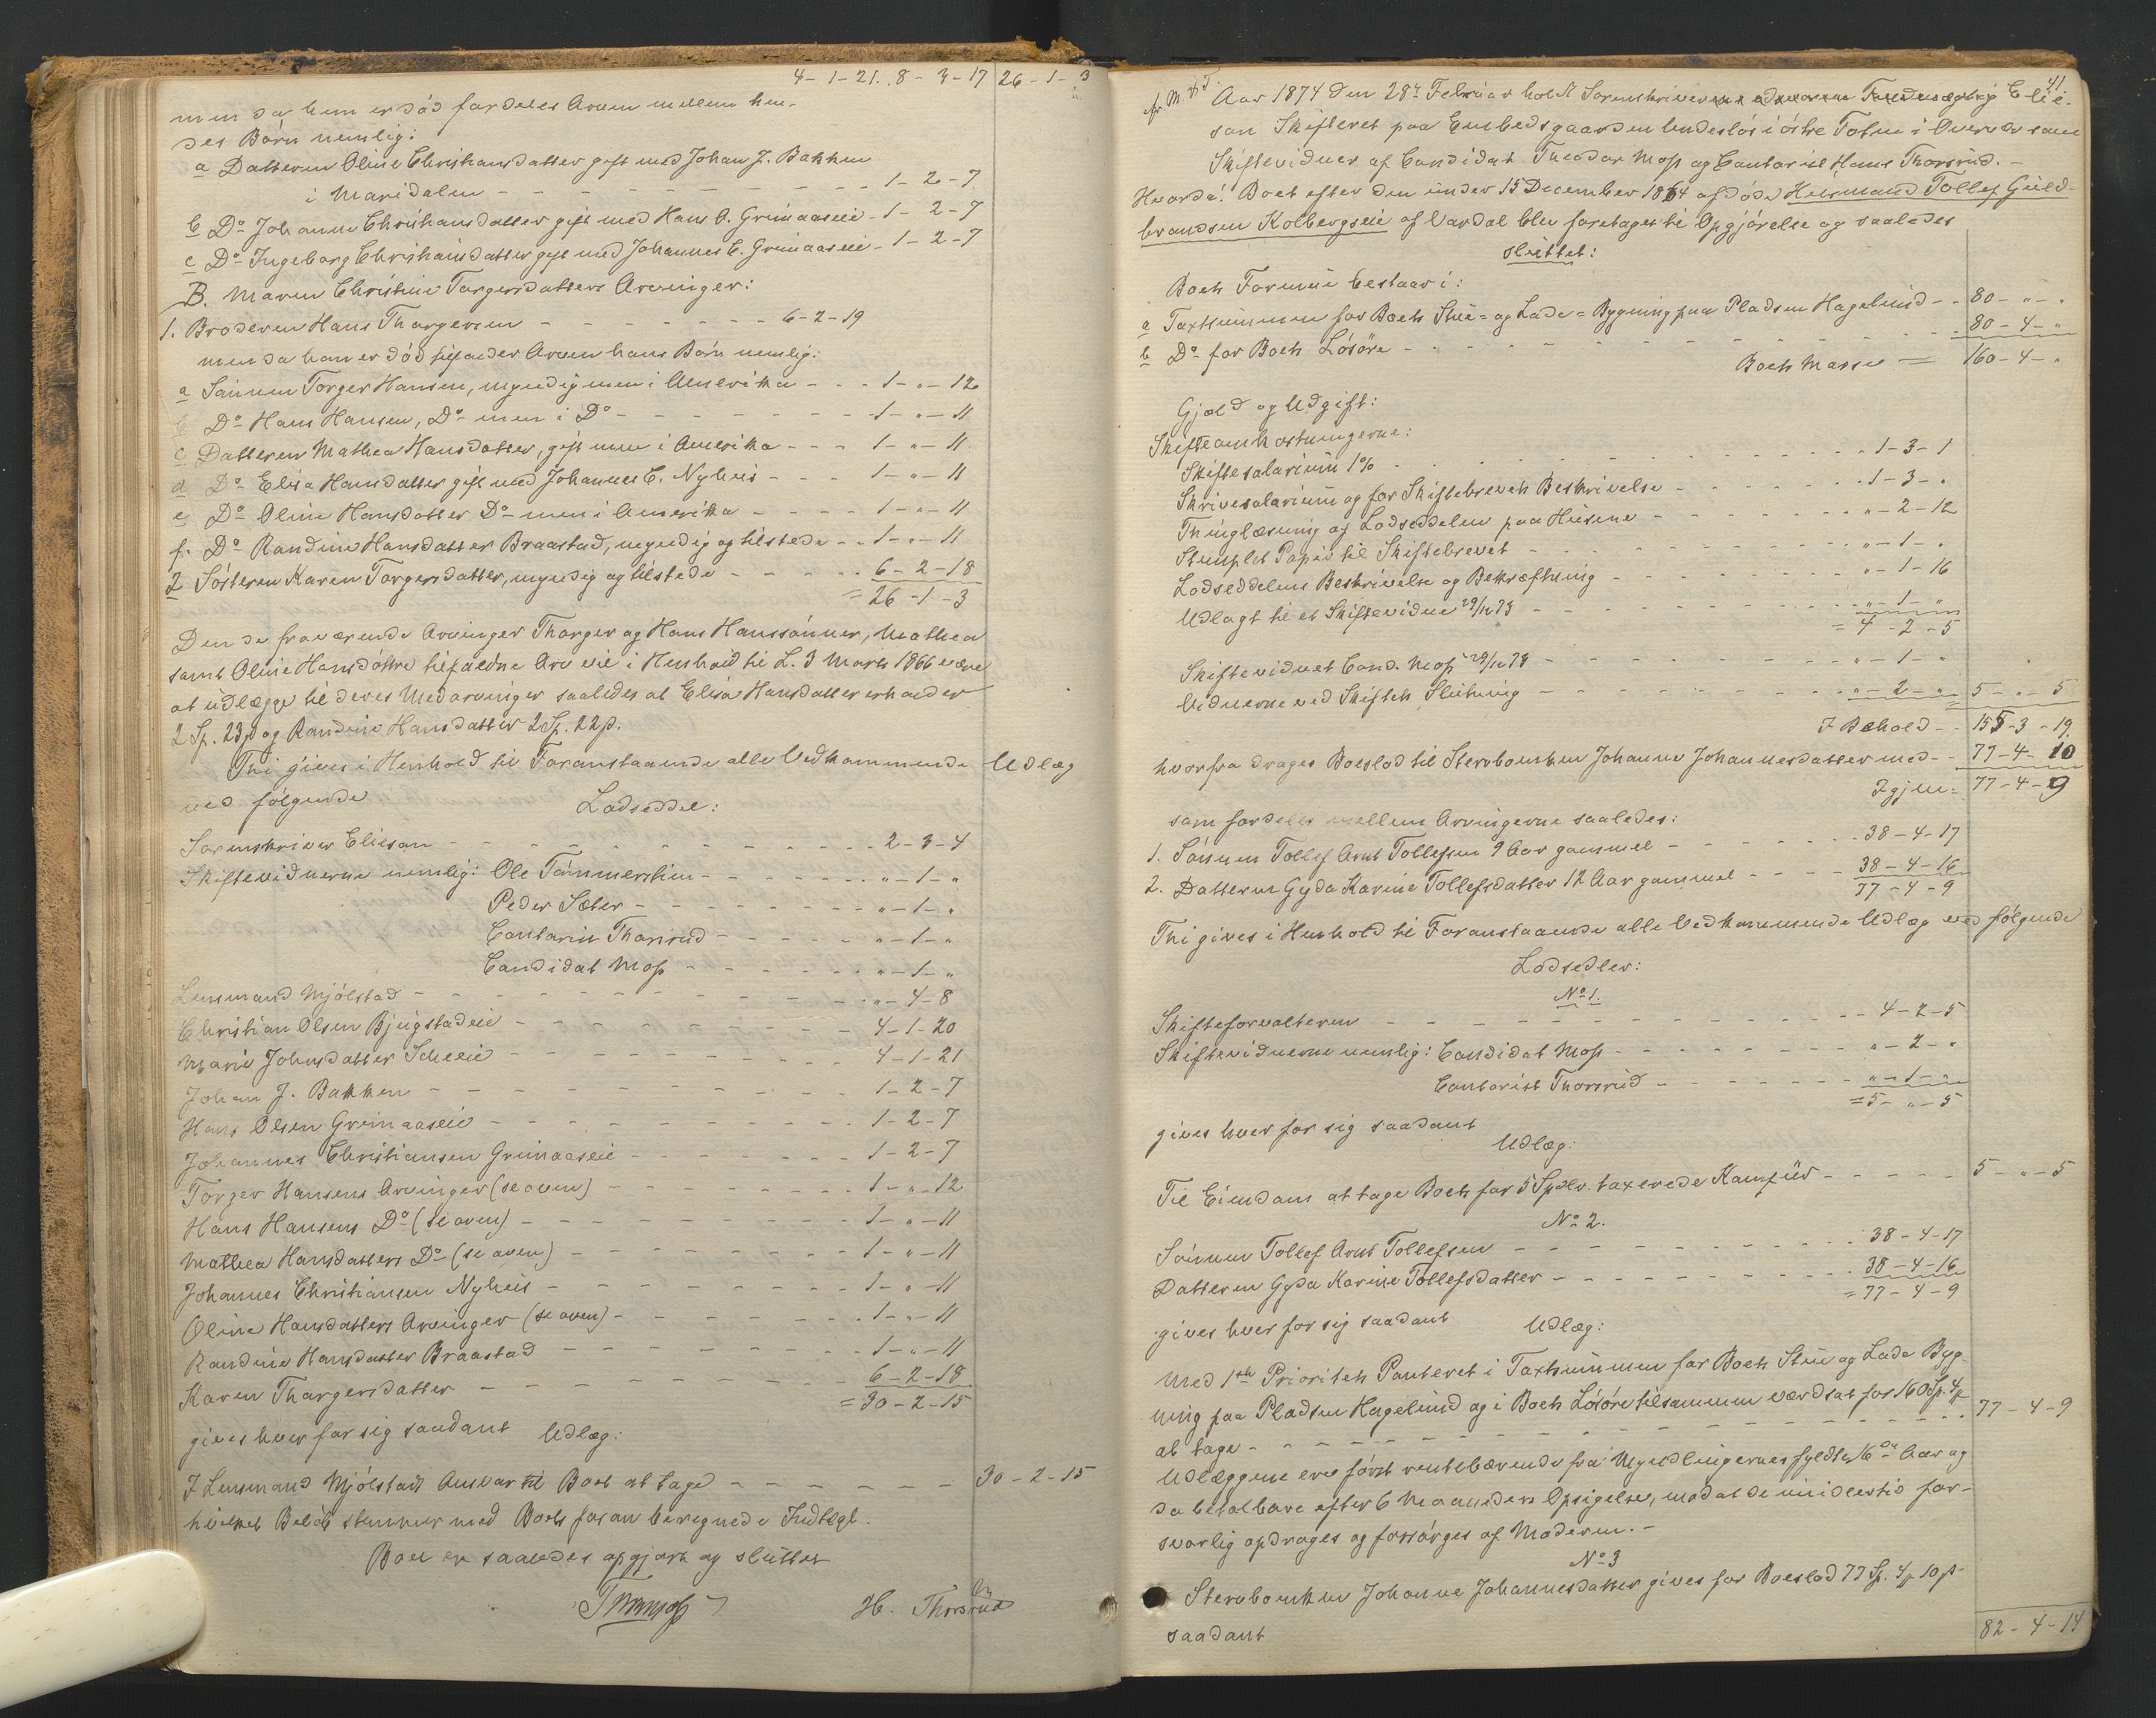 4-1-21. 8-3-17 26-1-3
men da hun er død fordeles Arven mellem hen-
des Børn nemlig:
a Datteren Oline Christiansdatter gift med Johan J. Bakken
i Maridalen - - - 1-2-7
b Do Johanne Christiansdatter gift med Hans O. Grimaaseie - 1-2-7
c Do Ingeborg Christiansdatter gift med Johannes C. Grimaaseie - 1-2-7
B. Maren Christine Torgersdatters Arvinger:
1. Broderen Hans Thorgersen - - - 6-2-19
men da han er død tilfalder Arven hans Børn nemlig:
a Sønnen Torger Hansen, myndig men i Amerika - - - 1-"-12
b Do Hans Hansen, Do men i Do - - - 1-"-11
c Datteren Mathea Hansdatter, gift men i Amerika - - - 1-"-11
d Do Elisa Hansdatter gift med Johannes C. Nyhus - - - 1-"-11
e Do Oline Hansdatter Do men i Amerika - - - 1-"-11
f. Do Randine Hansdatter Braastad, myndig og tilstede - - 1-"-11
2 Søsteren Karen Torgersdatter, myndig og tilstede - - - 6-2-18
= 26-1-3
Den de fraværende Arvinger Thorger og Hans Hanssønner, Mathea
samt Oline Hansdøttre tilfaldne Arv vil i Henhold til L. 3 Marts 1866 være
at udlægge til deres Medarvinger saaledes at Elisa Hansdatter erholder
2 Sp. 23 s og Randine Hansdatter 2 Sp. 22 s.
Thi gives i Henhold til Foranstaaende alle Vedkommende Udlæg
ved følgende
Lodseddel:
Sorenskriver Elieson - - - 2-3-4
Skiftevidnerne nemlig: Ole Tømmerstuen - - - "-1-"
Peder Sæter - - - "-1-"
Contorist Thorsrud - - - "-1-"
Candidat Moss - - - "-1-"
Lensmand Mjølstad - - - "-4-8
Christian Olsen Bjugstadeie - - - 4-1-20
Marie Johnsdatter - - - 4-1-21
Johan J. Bakken - - - 1-2-7
Hans Olsen Grimaaseie - - - 1-2-7
Johannes Christiansen Grimaaseie - - - 1-2-7
Torger Hansens Arvinger (se oven) - - - 1-"-12
Hans Hansens Do (se oven) - - - 1-"-11
Mathea Hansdatters Do (se oven) - - - 1-"-11
Johannes Christiansen Nyhus - - - 1-"-11
Oline Hansdatters Arvinger (se oven) - - - 1-"-11
Randine Hansdatter Braastad - - - 1-"-11
Karen Thorgersdatter - - - 6-2-18
= 30-2-15
gives hver for sig saadant Udlæg:
I Lensmand Mjølstads Ansvar til Boet at tage - - - 30-2-15
hvilket Beløb stemmer med Boets foran beregnede Indtægt.
Boet er saaledes opgjort og sluttet
T Moss H. Thorsrud
41
Aar 1874 den 28de Februar holdt Sorenskriver Elie-
son Skifteret paa Embedsgaarden Endeslös i östre Toten i Overvær som
Skiftevidner af Candidat Theodor Moss og Contorist Hans Thorsrud. -
Hvorda! Boet efter den under 15 December 1864 afdøde Huusmand Tollef Guld-
brandsen Kolbergseie af Vardal blev foretaget til Opgjørelse og saaledes
sluttet:
Boets Formue bestaar i:
a Taxtsummen for Boets Stue- og Lade-Bygning paa Pladsen Hagelund - - 80-"-"
b Do for Boets Løsøre - - - 80-4-"
Boets Masse = 160-4-"
Gjæld og Udgift:
Skifteomkostningerne:
Skiftesalarium 1% - - - 1-3-1
Skrivesalarium og for Skiftebrevets Beskrivelse - - - 1-3-"
Thinglæsning af Lodseddelen paa Husene - - - "-2-12
Stemplet Papir til Skiftebrevet - - - "-1-"
Lodseddelens Beskrivelse og Bekræftning - - - "-1-16
Udlagt til et Skiftevidne 29/12 73 - - - "-1-"
= 4-2-5
Skiftevidnet Cand. Moss 29/12 73 - - - "-1-"
Vidnerne ved Skiftets Slutning - - - "-2-" 5-"-5
I Behold - - 155-3-19.
hvorfra drages Boeslod til Stervboenken Johanne Johannesdatter med - - 77-4-10
Igjen = 77-4-9
som fordeles mellem Arvingerne saaledes:
1. Sønnen Tollef Arnt Tollefsen 9 Aar gammel - - - 38-4-17
2. Datteren Gyda Karine Tollefsdatter 12 Aar gammel - - - 38-4-16
77-4-9
Thi gives i Henhold til Foranstaaende alle Vedkommende Udlæg ved følgende
Lodsedler:
No 1.
Skifteforvalteren - - - 4-2-5
Skiftevidnerne nemlig: Candidat Moss - - - "-2-"
Contorist Thorsrud - - - "-1-"
= 5-"-5
gives hver for sig saadant
Udlæg:
Til Eiendom at tage Boets for 5 Spdlr. taxerede Komfur - - - 5-"-5
No 2.
Sønnen Tollef Arnt Tollefsen - - - 38-4-17
Datteren Gyda Karine Tollefsdatter - - - 38-4-16
= 77-4-9
gives hver for sig saadant Udlæg:
Med 1ste Prioritets Panteret i Taxtsummen for Boets Stue og Lade Byg-
ning paa Pladsen Hagelund og i Boets Løsøre tilsammen værdsat for 160 Sp. 4
at tage - - - 77-4-9
Udlæggene ere først rentebærende fra Myndlingernes fyldte 16de Aar og
da betalbare efter 6 Maaneders Opsigelse, mod at de imidlertid for-
svarlig opdrages og forsørges af Moderen. -
No 3
Stervboenken Johanne Johannesdatter gives for Boeslod 77 Sp. 4 10 s
saadant
82-4-14